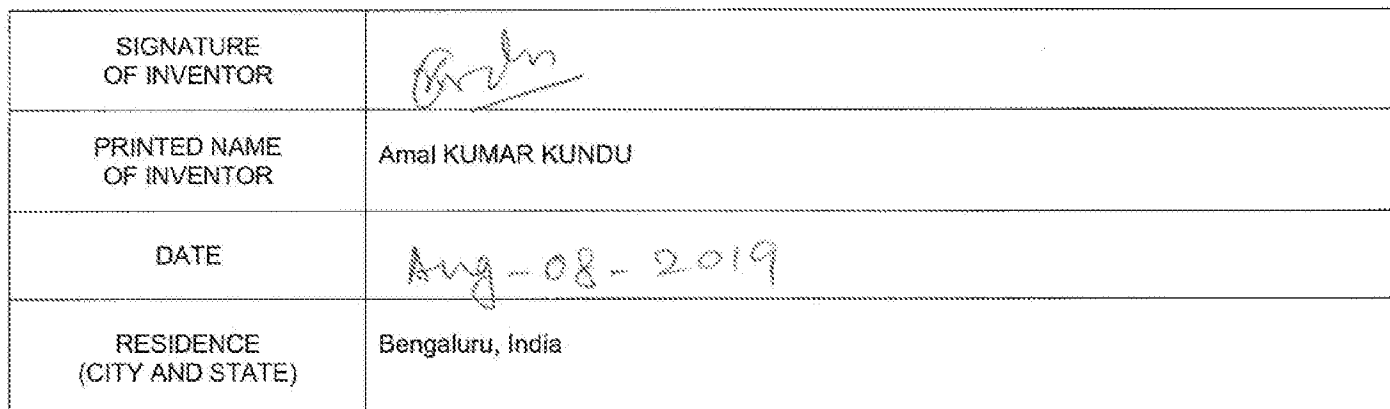 SIGNATURE
OF INVENTOR
PRINTED NAME
OF INVENTOR
Amal KUMAR KUNDU
DATE
Aug-08-2019
RESIDENCE
(CITY AND STATE)
Bengaluru, India